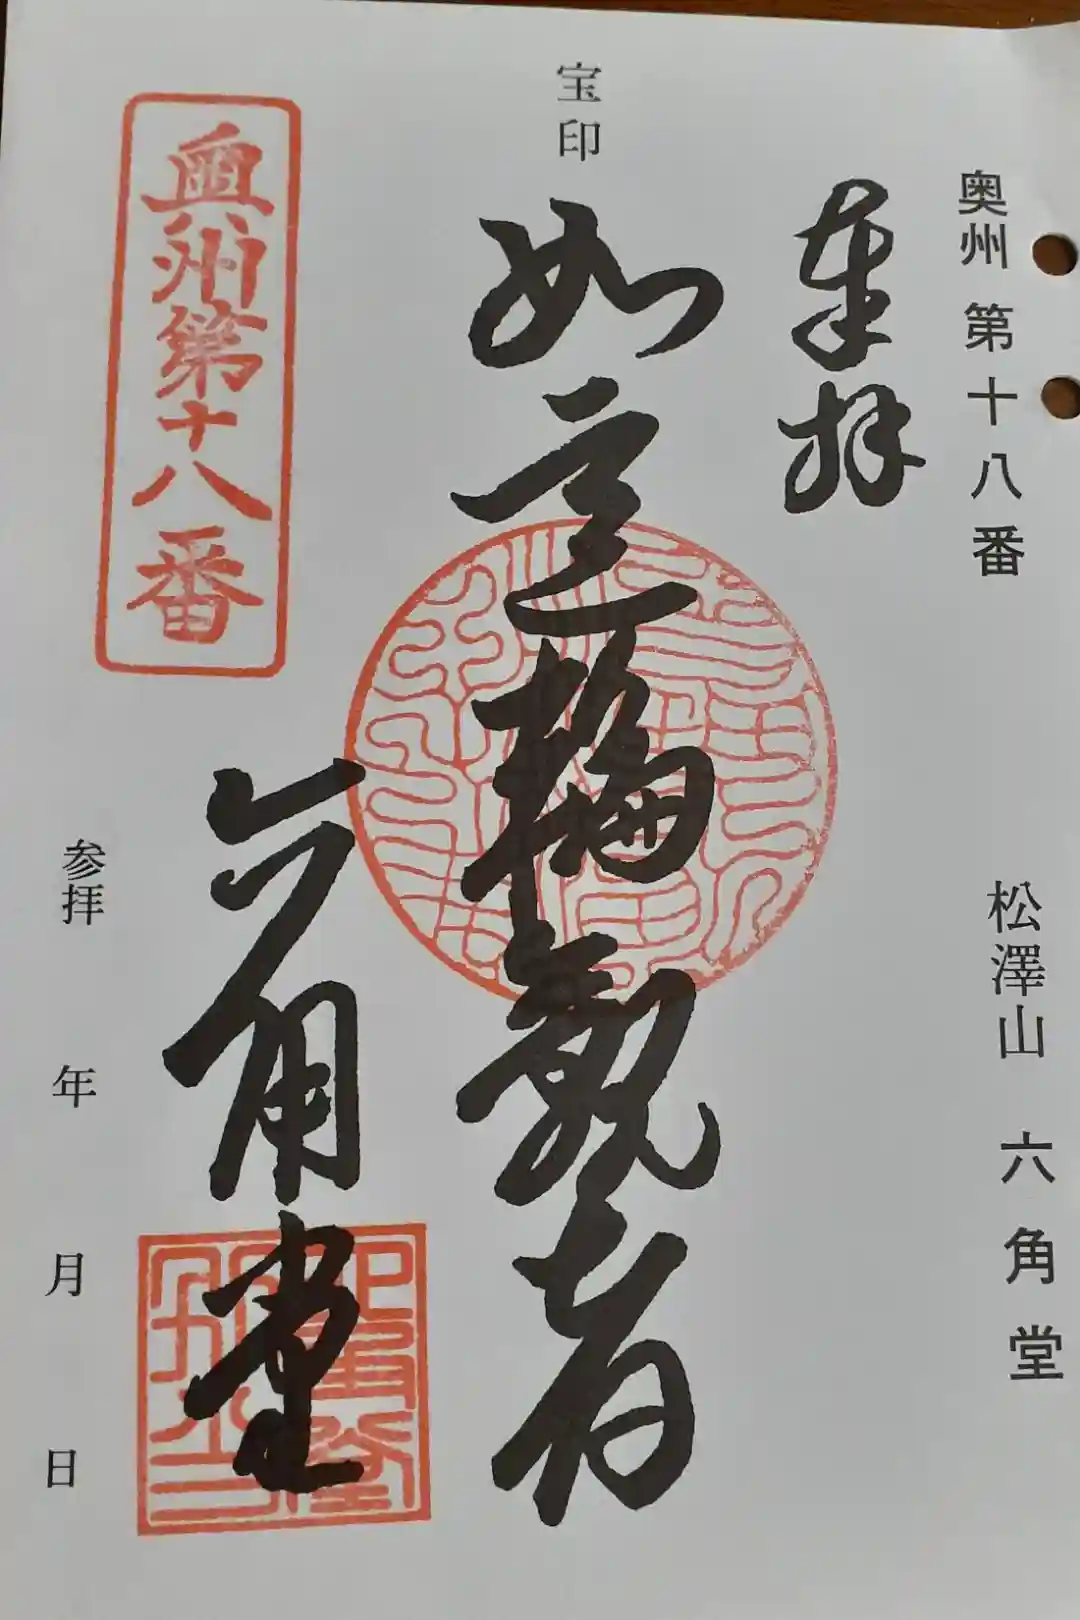 奥州第十八番
松澤山 六角堂
奉拝
宝印
如意輪観音
六角堂
奥州第十八番
参拝 年 月 日